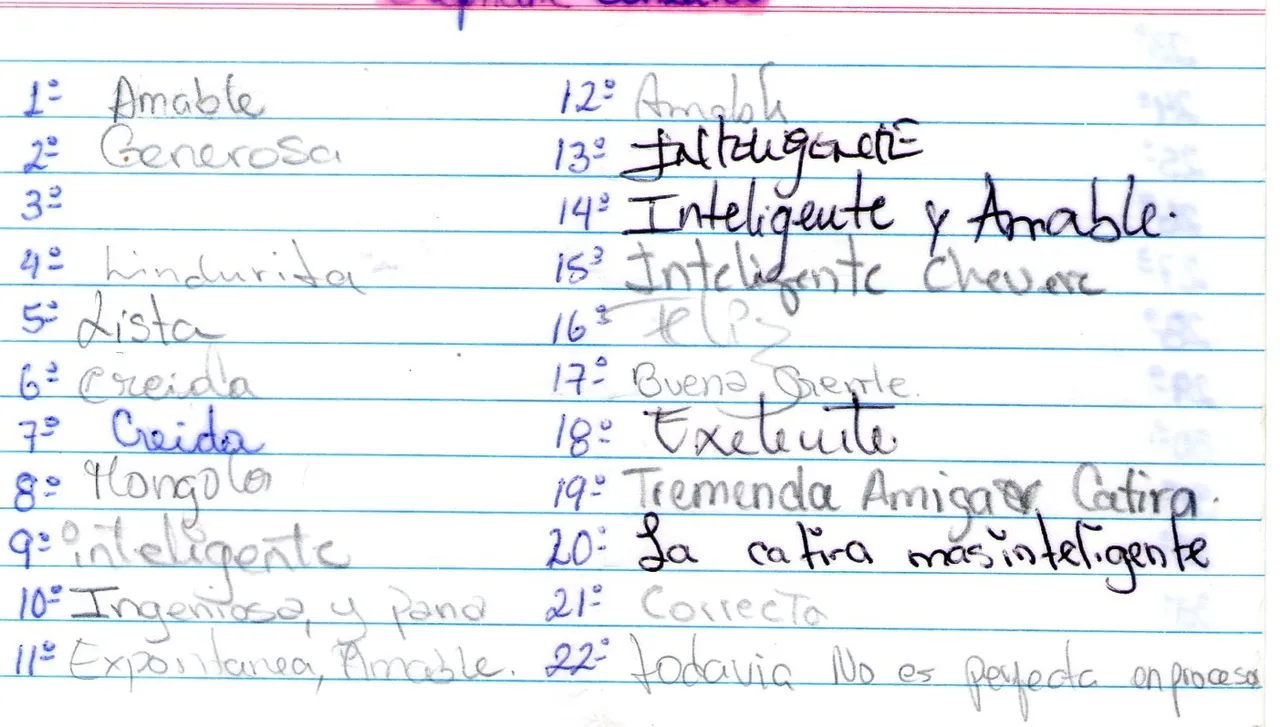 1º Amable
2º Generosa
3º
4º Lindurita
5º Lista
6º Creida
7º Creida
8º Mongola
9º inteligente
10º Ingeniosa, y pana
11º Expontanea, Amable.
12º Amable
13º INtEligENtE
14º Inteligente y Amable.
15º Inteligente Chevere
16º Feliz
17º Buena Gente.
18º Exelente
19º Tremenda Amiga Catira.
20º La catira mas inteligente
21º Correcta
22º todavia No es perfecta en proceso